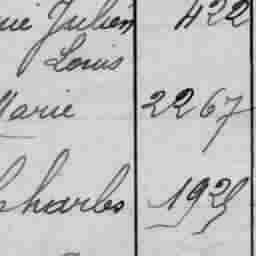 Julien 422
Louis
Marie 2267
Charles 1925